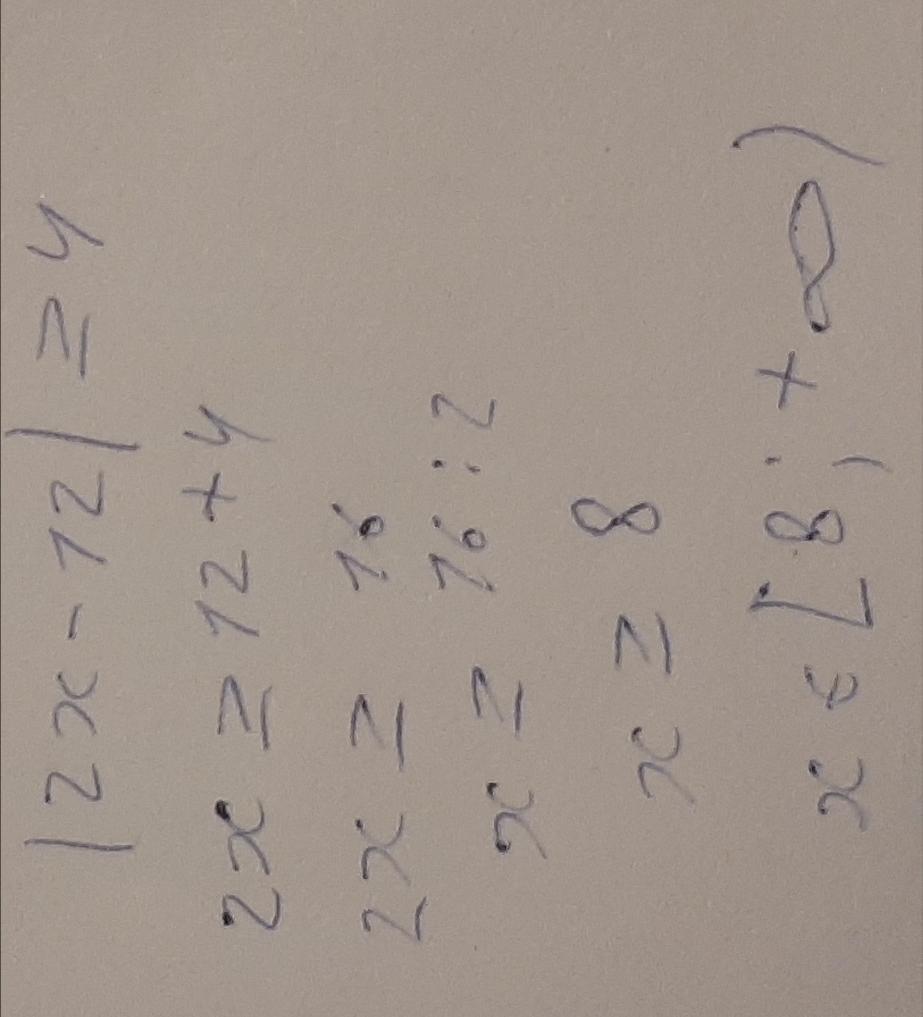 |2x - 12| ≥ 4
2x ≥ 12 + 4
2x ≥ 16
x ≥ 16 : 2
x ≥ 8
x ∈ [8; +∞)